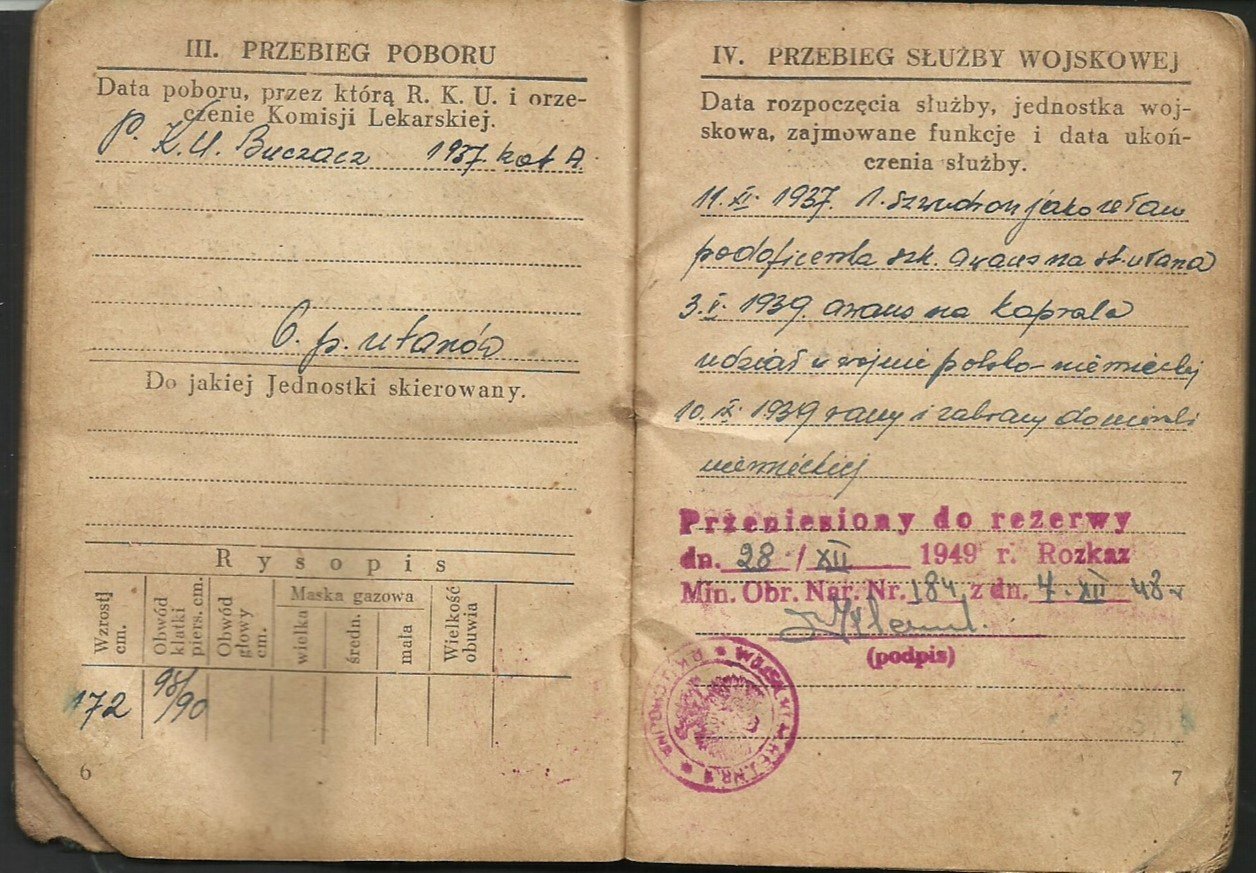 III. PRZEBIEG POBORU
Data poboru, przez którą R. K. U. i orze-
czenie Komisji Lekarskiej.
P. K. U. Buczacz 1937. kat A.
6. p. ułanów
Do jakiej Jednostki skierowany.
Rysopis
Wzrost cm.
Obwód klatki piers. cm.
Obwód głowy cm.
Maska gazowa
wielka
średn.
mała
Wielkość obuwia
172
98/90
6
IV. PRZEBIEG SŁUŻBY WOJSKOWEJ
Data rozpoczęcia służby, jednostka woj-
skowa, zajmowane funkcje i data ukoń-
czenia służby.
11. XI. 1937. 1. szwadron jako ułan
podoficerska szk. awans na st. ułana
3. V. 1939. awans na kaprala
udział w wojnie polsko-niemieckiej
10. IX. 1939 rany i zabrany do niewoli
niemieckiej
Przeniesiony do rezerwy
dn. 28 / XII 1949 r. Rozkaz
Min. Obr. Nar. Nr. 184 z dn. 4. XII 48 r
(podpis)
7